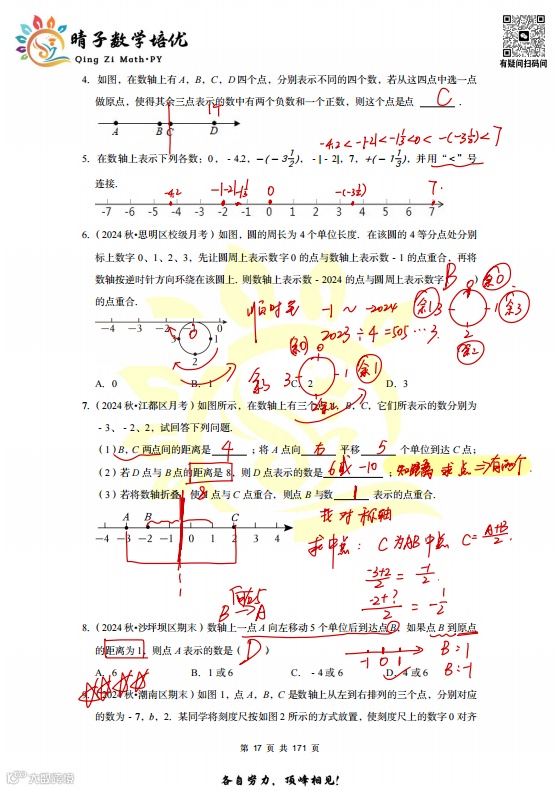 晴子数学培优
Qing Zi Math•PY
有疑问扫码问
4. 如图，在数轴上有 A，B，C，D 四个点，分别表示不同的四个数，若从这四点中选一点
做原点，使得其余三点表示的数中有两个负数和一个正数，则这个点是点 C .
A B C D
-4.2<-|-2|<-1½<0<-(-3½)<7
5. 在数轴上表示下列各数：0，-4.2，-(-3 1/2)，-|-2|，7，+(-1 1/3)，并用“<”号
连接.
-4.2 -|-2| -1⅓ 0 -(-3½) 7
-7 -6 -5 -4 -3 -2 -1 0 1 2 3 4 5 6 7
6.（2024 秋•思明区校级月考）如图，圆的周长为 4 个单位长度．在该圆的 4 等分点处分别
标上数字 0、1、2、3，先让圆周上表示数字 0 的点与数轴上表示数 - 1 的点重合，再将
数轴按逆时针方向环绕在该圆上．则数轴上表示数 - 2024 的点与圆周上表示数字（ B ）
的点重合．
顺时针 -1 ~ -2024
2023÷4=505…3
余0 余1 余3 余2
-4 -3 -2 -1 0
0 1 2 3
A．0 B．1 C．2 D．3
7.（2024 秋•江都区月考）如图所示，在数轴上有三个点 A、B、C，它们所表示的数分别为
﹣3、﹣2、2，试回答下列问题.
（1）B，C 两点间的距离是 4 ；将 A 点向 右 平移 5 个单位到达 C 点；
（2）若 D 点与 B 点的距离是 8，则 D 点表示的数是 6或-10 ；知距离求点⇒有两个.
（3）若将数轴折叠，使 A 点与 C 点重合，则点 B 与数 1 表示的点重合.
找对称轴
A B C
-3 -2 -1 0 1 2 3 4
求中点： C为AB中点 C=A+B/2
-3+2/2 = -1/2
-2+?/2 = -1/2
B→A
8.（2024 秋•沙坪坝区期末）数轴上一点 A 向左移动 5 个单位后到达点 B，如果点 B 到原点
的距离为 1，则点 A 表示的数是（ D ）
-1 0 1
B=1
B=-1
A．6 B．1 或 6 C．﹣4 或 6 D．4 或 6
9.（2024 秋•潮南区期末）如图 1，点 A，B，C 是数轴上从左到右排列的三个点，分别对应
的数为﹣7，b，2．某同学将刻度尺按如图 2 所示的方式放置，使刻度尺上的数字 0 对齐
第 17 页 共 171 页
各自努力，顶峰相见！